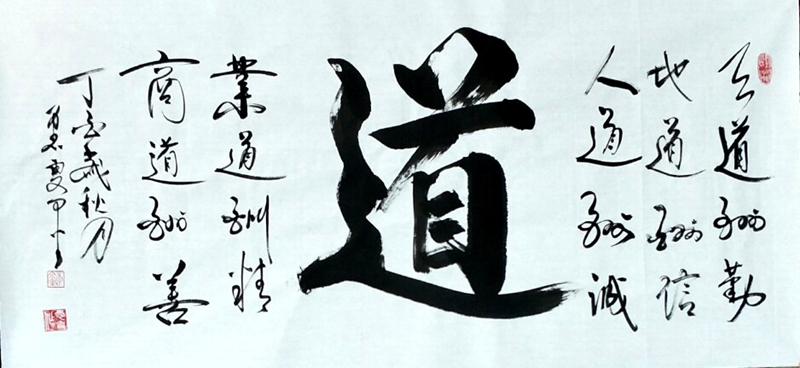 天道酬勤
地道酬信
人道酬诚
道
業道酬精
商道酬善
丁酉歲秋月